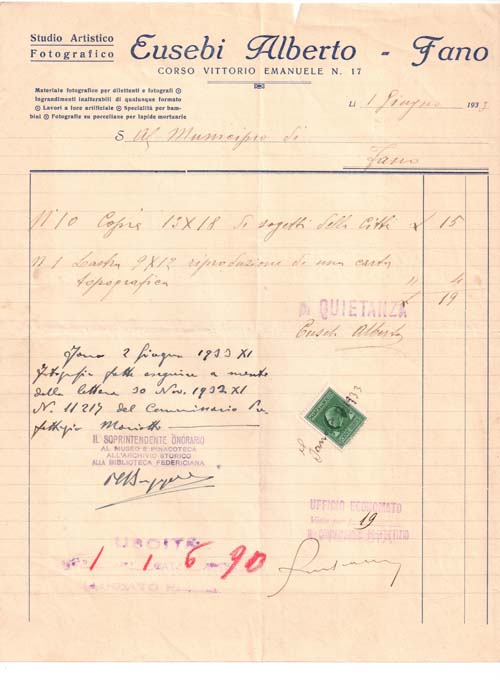 Studio Artistico
Fotografico
Eusebi Alberto - Fano
CORSO VITTORIO EMANUELE N. 17
Materiale fotografico per dilettanti e fotografi
Ingrandimenti inalterabili di qualunque formato
Lavori a luce artificiale Specialità per bam-
bini Fotografie su porcellane per lapide mortuarie
Lì 1 Giugno 1933
S Al Municipio di
Fano
N 10 Copie 13 X 18 di sogetti della Città £ 15
N 1 Lastra 9 X 12 riproduzione di una carta
topografica " 4
£ 19
Di QUIETANZA
Euseb Alberto
Fano 2 Giugno 1933 XI
Fotografie fatte eseguire a mente
della lettera 30 Nov. 1932 XI
N. 11217 del Commissario Pre
fettizio Mariotti
IL SOPRINTENDENTE ONORARIO
AL MUSEO E PINACOTECA
ALL'ARCHIVIO STORICO
ALLA BIBLIOTECA FEDERICIANA
Fano 1933
UFFICIO ECONOMATO
19
USCITA
1 1 6 90